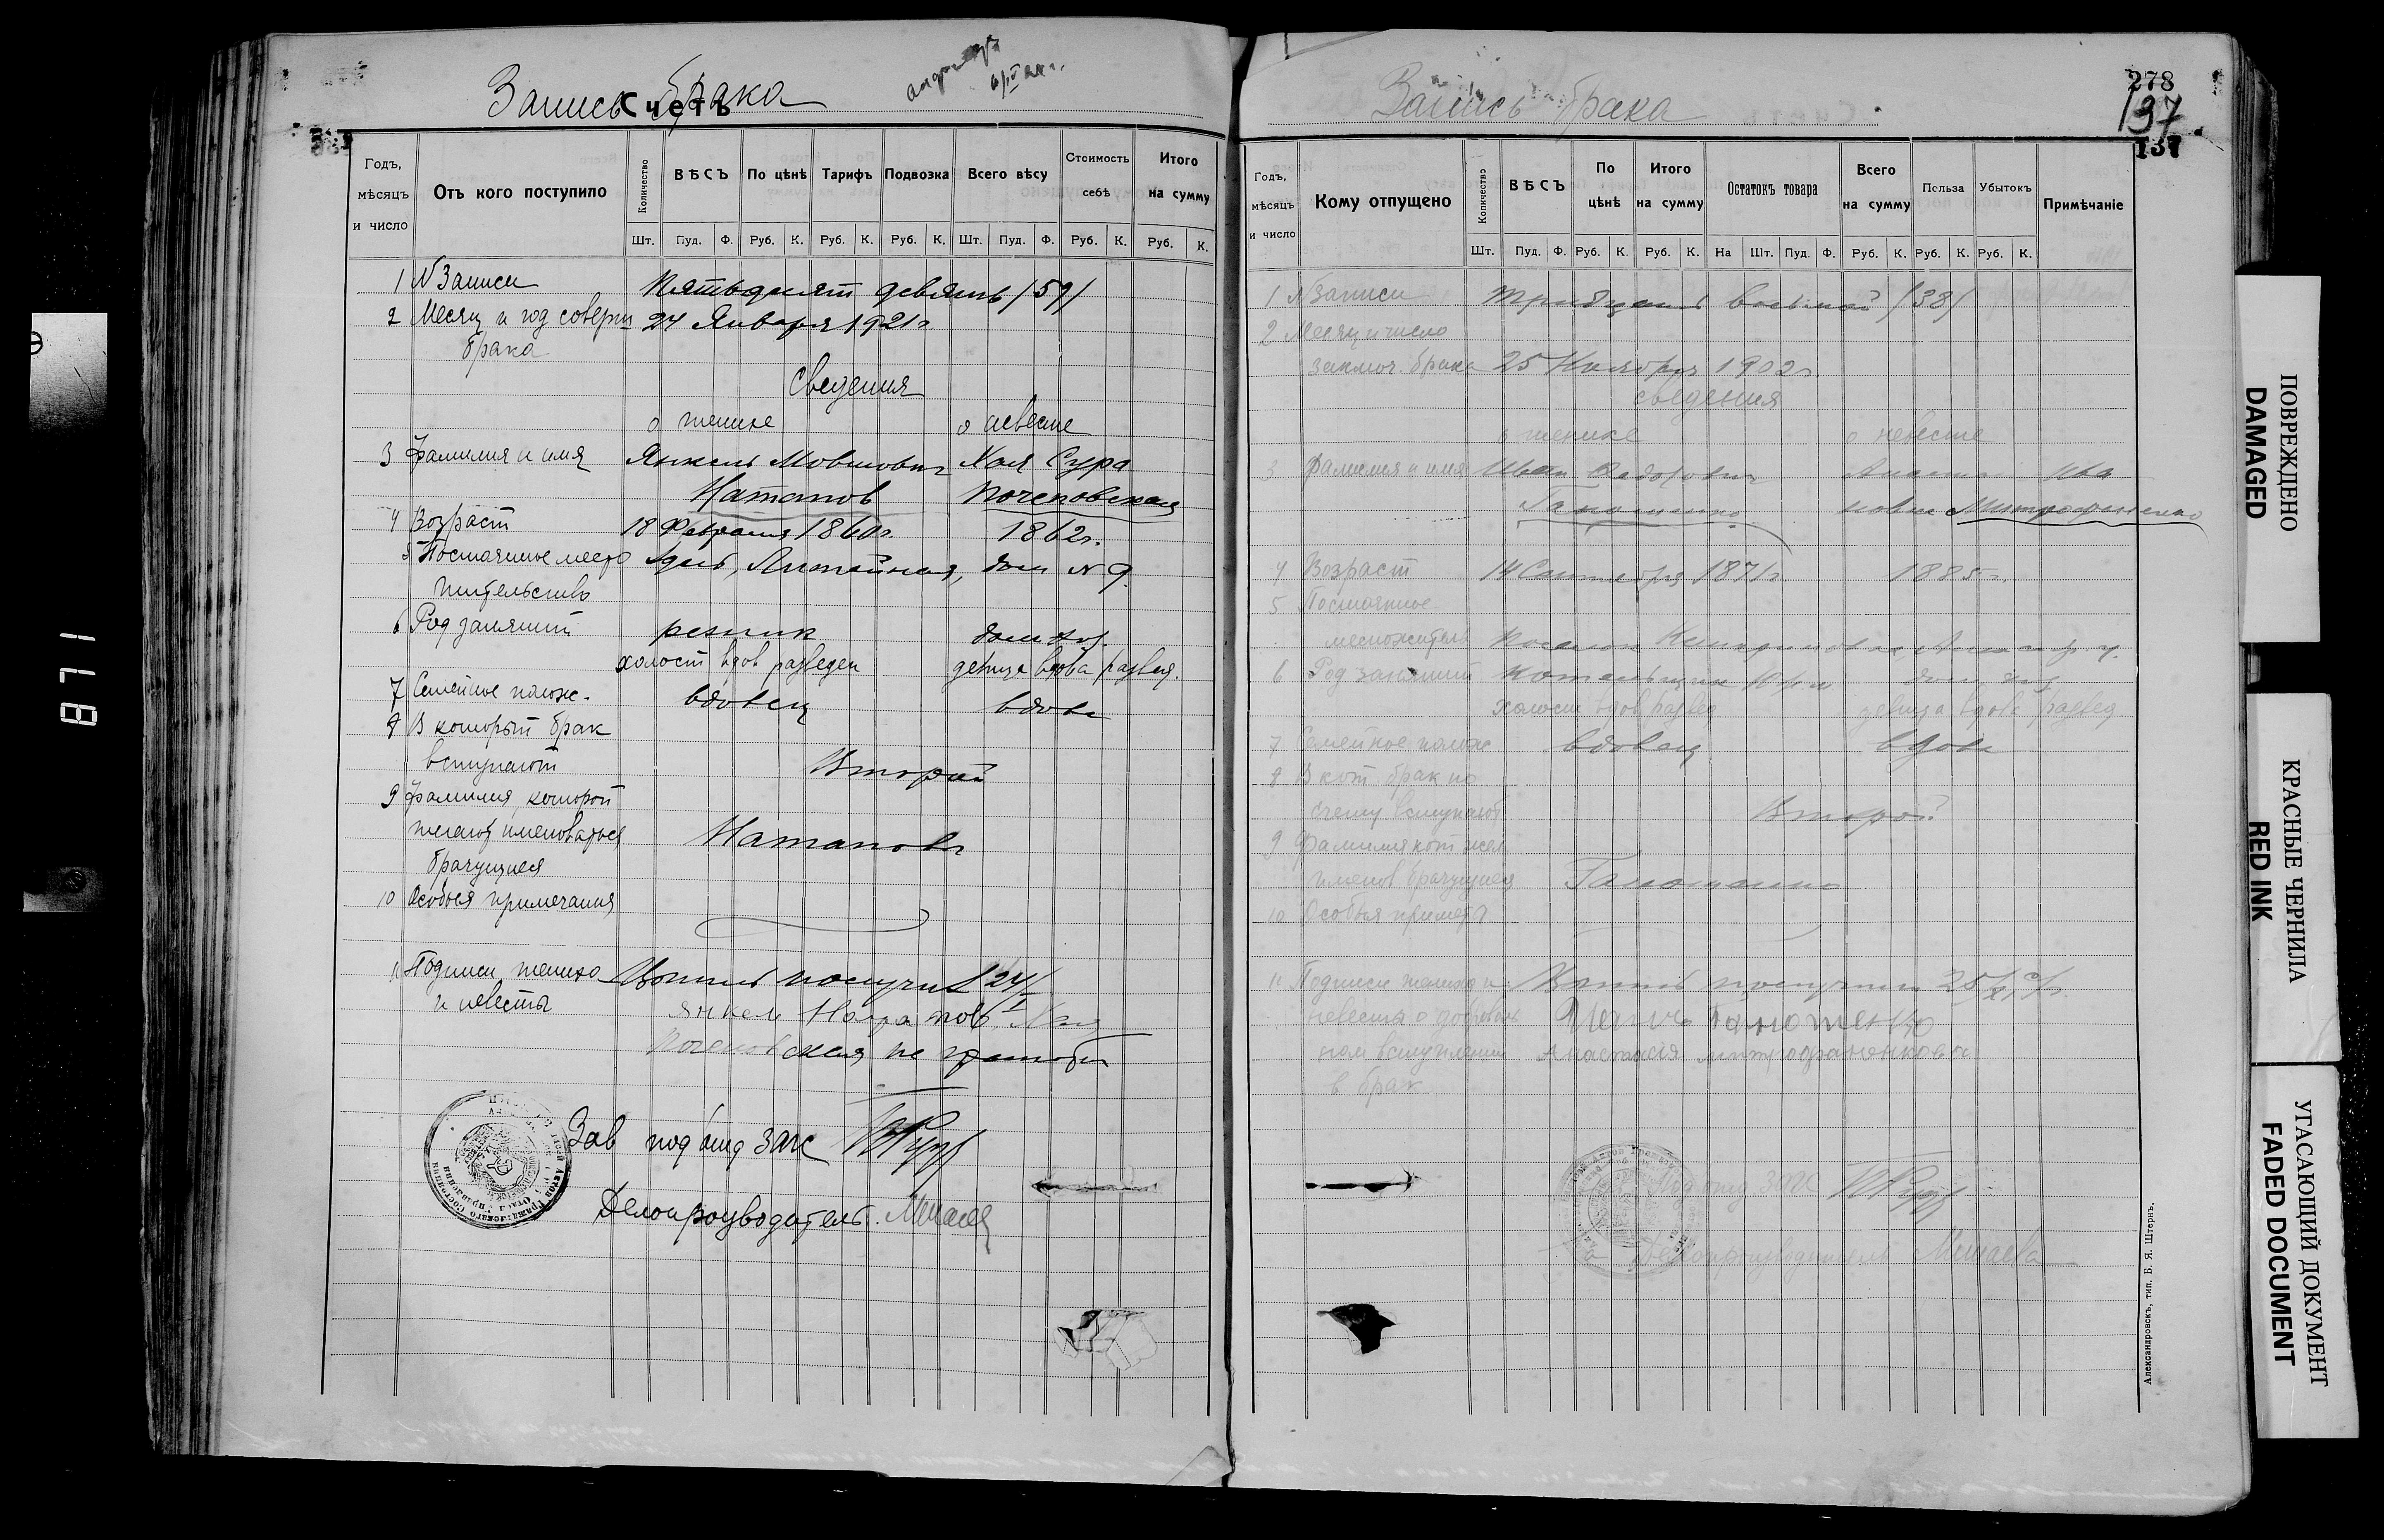 Запись брака
Счетъ
Годъ, мѣсяцъ и число
Отъ кого поступило
Количество
ВѢСЪ
По цѣнѣ
Тарифъ
Подвозка
Всего вѣсу
Стоимость себѣ
Итого на сумму
Шт. Пуд. Ф. Руб. К. Руб. К. Руб. К. Шт. Пуд. Ф. Руб. К. Руб. К.
1 N Записи Пятьдесят девять /59/
2 Месяц и год соверш 24 Января 1921 г
брака
Сведения
о женихе о невесте
3 Фамилия и имя Янкель Мовшович Хая Сура
Натанов Почеповская
4 Возраст 18 Февраля 1860 г. 1862 г.
5 Постоянное место Литейная, дом N 9
жительства
6 Род занятий резник дом хоз.
холост вдов разведен девица вдова развед.
7 Семейное полож. вдовец вдова
8 В который брак
вступают Второй
9 Фамилия, которой
желают именоваться Натанов
брачущиеся
10 Особыя примечания
11 Подписи жениха получил 24/I
и невесты Янкель Хая
Почеповская не грамотн
Зав под отд загс
Делопроизводитель. Минаева
278
137
137
Запись брака
Годъ, мѣсяцъ и число
Кому отпущено
Количество
ВѢСЪ
По цѣнѣ
Итого на сумму
Остатокъ товара
Всего на сумму
Польза
Убытокъ
Примѣчаніе
Шт. Пуд. Ф. Руб. К. Руб. К. На Шт. Пуд. Ф. Руб. К. Руб. К. Руб. К.
1 N записи тридцать восьмой /38/
2 Месяц и число
заключ. брака 25 Ноября 1902 г.
сведения
о женихе о невесте
3 Фамилия и имя Иван Федорович Ива
новна Митрофаненко
4 Возраст 14 Сентября 1871 г. 1885 г.
5 Постоянное
местожитель поселок
6 Род занятий котельщик дом хоз
холост вдов развед девица вдова развед
7 Семейное полож вдовец вдова
8 В кот брак по
счету вступают Второй
9 Фамилия кот жел
именов брачущиеся Гапошенко
10 Особыя примеч
11 Подписи жениха и
невесты о доброволь
ном вступлении Анастасія митрофаненкова
в брак
Под отд загс
Делопроизводитель Минаева
Александровскъ, тип. Б. Я. Штернъ.
871
ПОВРЕЖДЕНО
DAMAGED
КРАСНЫЕ ЧЕРНИЛА
RED INK
УГАСАЮЩИЙ ДОКУМЕНТ
FADED DOCUMENT